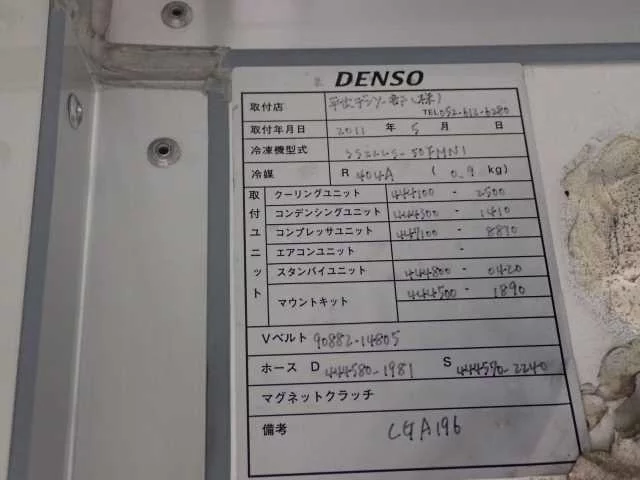 DENSO
取付店
TEL 052-613-6280
取付年月日 2011 年 5 月 日
冷凍機型式
冷媒 R 404A ( 0.9 kg)
取付ユニット
クーリングユニット 444100 - 2500
コンデンシングユニット 444300 - 1410
コンプレッサユニット 447100 - 8830
エアコンユニット -
スタンバイユニット 444800 - 0420
マウントキット 444500 - 1890
Vベルト 90882-14805
ホース D 444580-1981 S 444590-2240
マグネットクラッチ
備考 LGA196